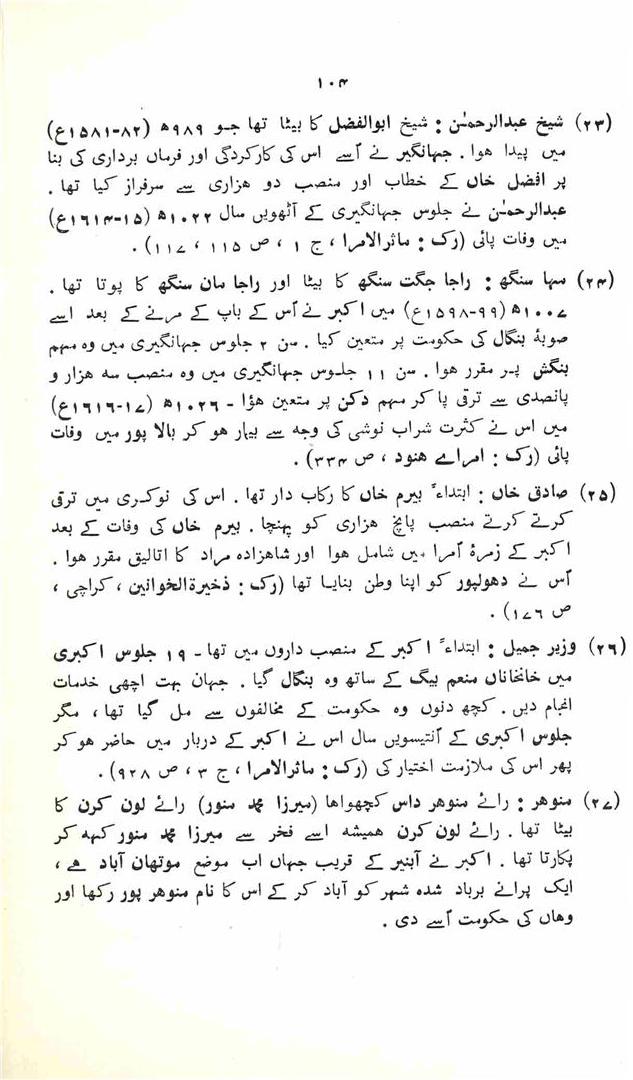 ۱۰۴
(۲۳) شیخ عبدالرحمٰن : شیخ ابوالفضل کا بیٹا تھا جو ۹۸۹ھ (۸۲-۱۵۸۱ع)
میں پیدا ہوا . جہانگیر نے اُسے اس کی کارکردگی اور فرماں برداری کی بنا
پر افضل خاں کے خطاب اور منصب دو ہزاری سے سرفراز کیا تھا .
عبدالرحمٰن نے جلوس جہانگیری کے آٹھویں سال ۱۰۲۲ھ (۱۵-۱۶۱۴ع)
میں وفات پائی (رک : ماثرالامرا ، ج ۱ ، ص ۱۱۵ ، ۱۱۷) .
(۲۴) مہا سنگھ : راجا جگت سنگھ کا بیٹا اور راجا مان سنگھ کا پوتا تھا .
۱۰۰۷ھ (۹۹-۱۵۹۸ع) میں اکبر نے اُس کے باپ کے مرنے کے بعد اسے
صوبۂ بنگال کی حکومت پر متعین کیا . سن ۲ جلوس جہانگیری میں وہ مہم
بنگش پر مقرر ہوا . سن ۱۱ جلوس جہانگیری میں وہ منصب سه ہزار و
پانصدی سے ترقی پا کر مہم دکن پر متعین ہؤا - ۱۰۲۶ھ (۱۷-۱۶۱۶ع)
میں اس نے کثرت شراب نوشی کی وجہ سے بیمار ہو کر بالا پور میں وفات
پائی (رک : امراے ہنود ، ص ۳۳۴) .
(۲۵) صادق خاں : ابتداءً بیرم خاں کا رکاب دار تھا . اس کی نوکری میں ترقی
کرتے کرتے منصب پانچ ہزاری کو پہنچا . بیرم خاں کی وفات کے بعد
اکبر کے زمرۂ اُمرا میں شامل ہوا اور شاہزادہ مراد کا اتالیق مقرر ہوا .
اُس نے دھولپور کو اپنا وطن بنایا تھا (رک : ذخیرۃالخوانین ، کراچی ،
ص ۱۷۶) .
(۲۶) وزیر جمیل : ابتداءً اکبر کے منصب داروں میں تھا - ۱۹ جلوس اکبری
میں خانخاناں منعم بیگ کے ساتھ وہ بنگال گیا . جہاں بہت اچھی خدمات
انجام دیں . کچھ دنوں وہ حکومت کے مخالفوں سے مل گیا تھا ، مگر
جلوس اکبری کے اُنتیسویں سال اس نے اکبر کے دربار میں حاضر ہو کر
پھر اس کی ملازمت اختیار کی (رک : ماثرالامرا ، ج ۳ ، ص ۹۲۸) .
(۲۷) منوہر : رائے منوہر داس کچھواہا (میرزا محمد منور) رائے لون کرن کا
بیٹا تھا . رائے لون کرن ہمیشہ اسے فخر سے میرزا محمد منور کہہ کر
پکارتا تھا . اکبر نے آنبیر کے قریب جہاں اب موضع موتھان آباد ہے ،
ایک پرانے برباد شدہ شہر کو آباد کر کے اس کا نام منوہر پور رکھا اور
وہاں کی حکومت اُسے دی .